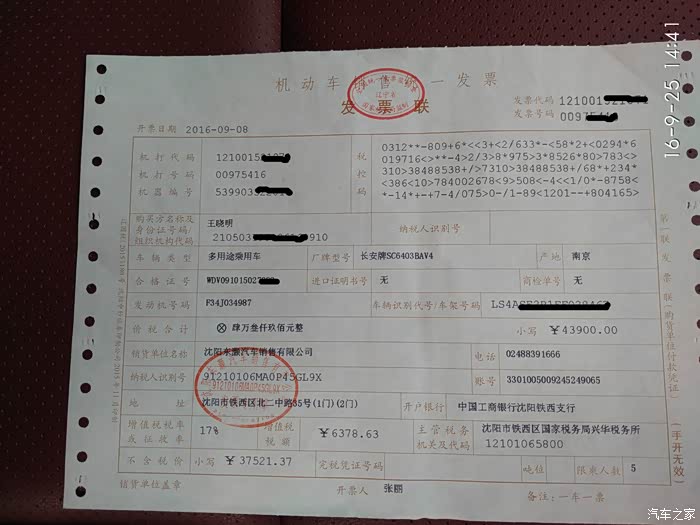 机动车销售统一发票
发票联
发票代码
发票号码
开票日期 2016-09-08
机打代码
机打号码 00975416
机器编号
税控码
0312**-809+6*<<3+<2/633*-<58*2+<0294*6
019716<>**-4>2/3>8*975>3*8526*80>783<>
310>38488538+/>7310>38488538+/68*+234*
<386<10>784002678<9>508<-4<<1/0*-8758<
*-14*+-+7-4/075>0-/1-89<1201--+804165>
购买方名称及
身份证号码/
组织机构代码
王晓明
纳税人识别号
车辆类型 多用途乘用车 厂牌型号 长安牌SC6403BAV4 产地 南京
合格证号 进口证明书号 无 商检单号 无
发动机号码 F34J034987 车辆识别代号/车架号码
价税合计 ⊗肆万叁仟玖佰元整 小写 ¥43900.00
销货单位名称 电话 02488391666
纳税人识别号 91210106MA0P45GL9X 账号 3301005009245249065
地址 沈阳市铁西区北二中路35号(1门)(2门) 开户银行 中国工商银行沈阳铁西支行
增值税税率
或征收率 17% 增值税
税额 ¥6378.63 主管税务
机关及代码 沈阳市铁西区国家税务局兴华税务所
12101065800
不含税价 小写 ¥37521.37 完税凭证号码 吨位 限乘人数 5
销货单位盖章 开票人 张丽 备注:一车一票
第一联 发票联(购货单位付款凭证)
(手开无效)
16-9-25 14:41
汽车之家